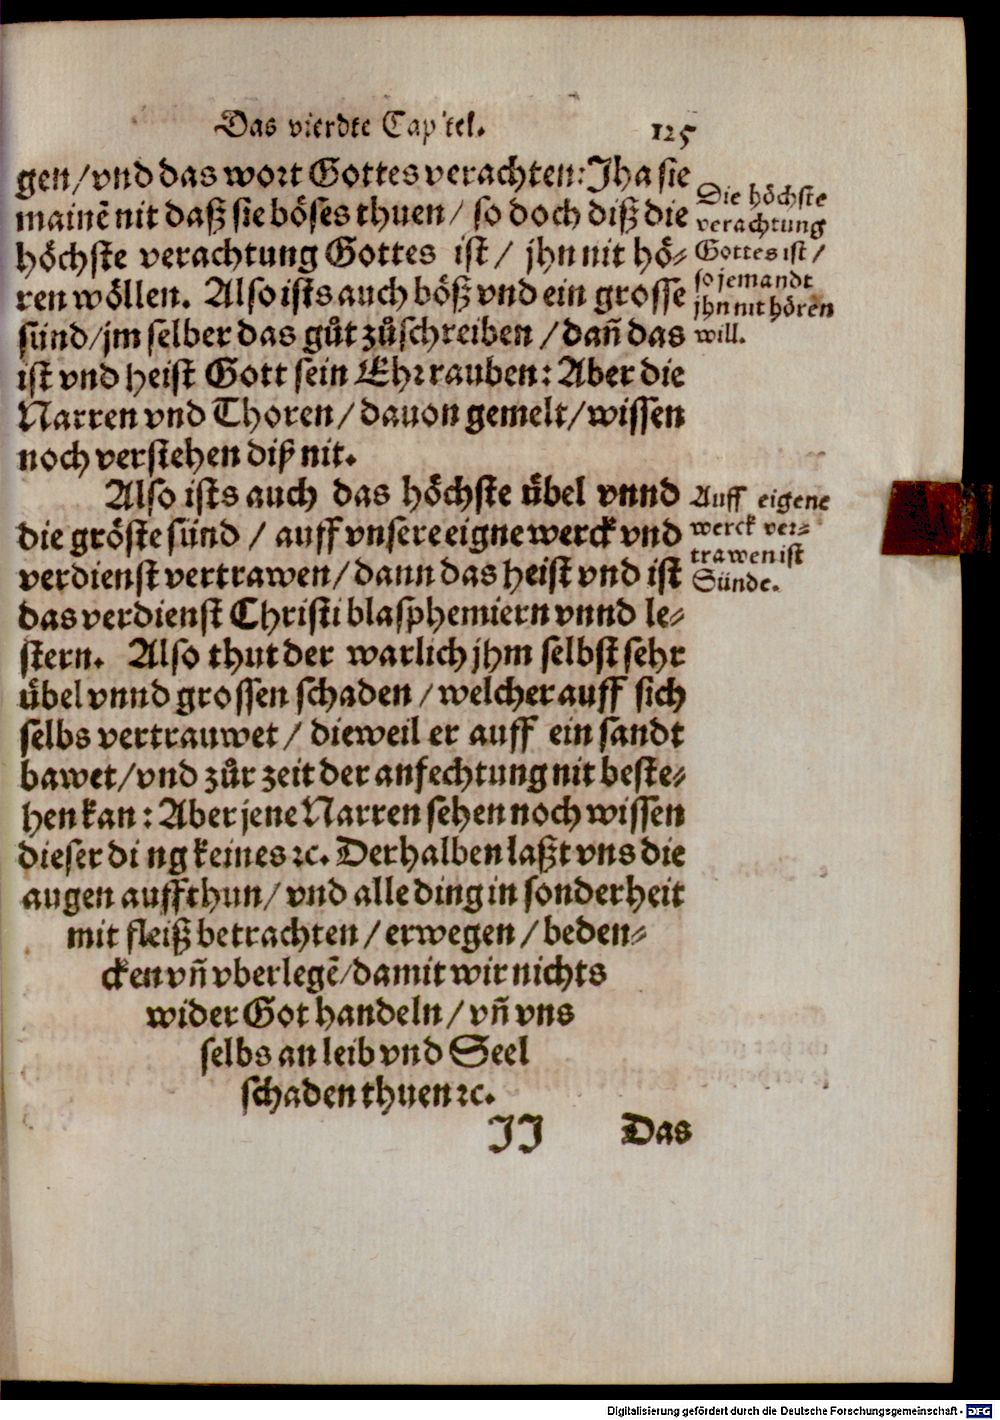 Das vierdte Capitel. 125
gen/vnd das wort Gottes verachten: Jha sie
mainē nit daß sie böses thuen/ so doch diß die
höchste verachtung Gottes ist/ jhn nit hö-
ren wöllen. Also ists auch böß vnd ein grosse
sünd/jm selber das gůt zůschreiben/dañ das
ist vnd heist Gott sein Ehr rauben: Aber die
Narren vnd Thoren/dauon gemelt/wissen
noch verstehen diß nit.
Die höchste
verachtung
Gottes ist/
so jemandt
jhn nit hören
will.
Also ists auch das höchste übel vnnd
die gröste sünd/ auff vnsere eigne werck vnd
verdienst vertrawen/dann das heist vnd ist
das verdienst Christi blasphemiern vnnd le-
stern. Also thut der warlich jhm selbst sehr
übel vnnd grossen schaden/welcher auff sich
selbs vertrauwet/ dieweil er auff ein sandt
bawet/vnd zůr zeit der anfechtung nit beste-
hen kan: Aber jene Narren sehen noch wissen
dieser ding keines ꝛc. Derhalben laßt vns die
augen auffthun/vnd alle ding in sonderheit
mit fleiß betrachten/erwegen/beden-
cken vñ vberlegē/damit wir nichts
wider Got handeln/vñ vns
selbs an leib vnd Seel
schaden thuen ꝛc.
Auff eigene
werck ver-
trawen ist
Sünde.
JJ Das
Digitalisierung gefördert durch die Deutsche Forschungsgemeinschaft - DFG